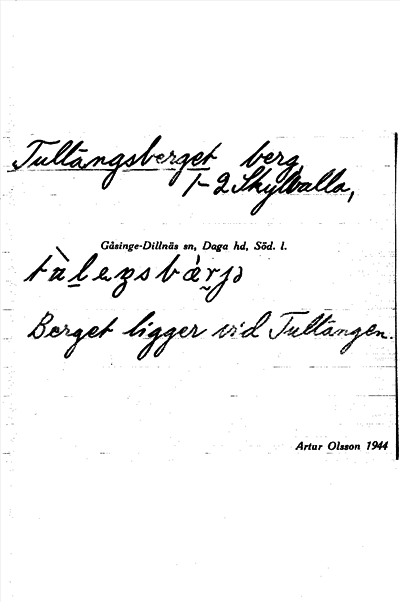 Tultängsberget berg
1-2 Skylvalla,
Gåsinge-Dillnäs sn, Daga hd, Söd. l.
Berget ligger vid Tultängen.
Artur Olsson 1944